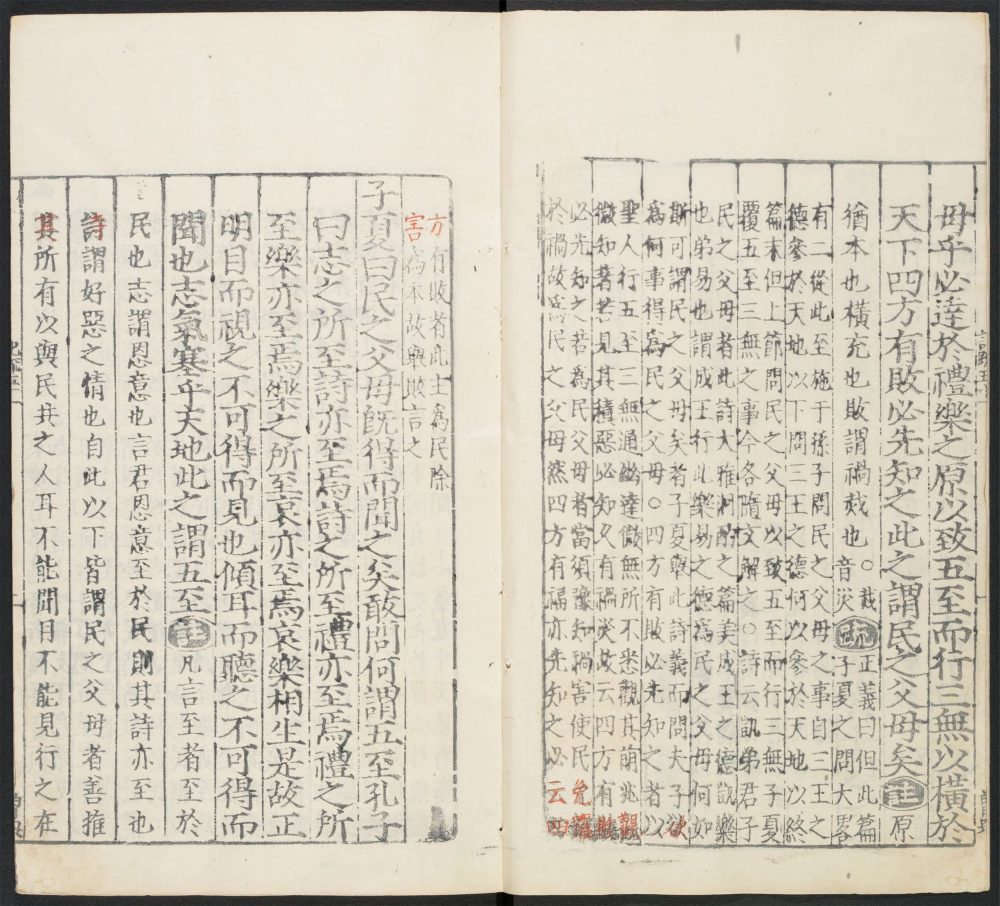 母乎必達於禮樂之原以致五至而行三無以橫於
天下四方有敗必先知之此之謂民之父母矣註原
猶本也橫充也敗謂禍烖也○烖音災
疏正義曰但此篇子夏之問大畧
有二從此至施于孫子問民之父母之事自三王之
德參於天地以下問三王之德何以參於天地以終
篇末但上節問民之父母以致五至而行三無子夏
覆五至三無之事今各隨文解之○詩云凱弟君子
民之父母者此詩大雅泂酌之篇美成王之德凱樂
也弟易也謂成王行此樂易之德爲民之父母何如
斯可謂民之父母矣者子夏舉此詩義而問夫子欲
爲何事得爲民之父母○四方有敗必先知之者以
聖人行五至三無通幽達微無所不悉觀其萌兆觀
微知著若見其積惡必知久有禍災故云四方有敗
必先知之若爲民父母者當須豫知禍害使民免離
於禍故爲民之父母然四方有福亦先知之必云四
方有敗者此主爲民除
害爲本故舉敗言之
子夏曰民之父母旣得而聞之矣敢問何謂五至孔子
曰志之所至詩亦至焉詩之所至禮亦至焉禮之所
至樂亦至焉樂之所至哀亦至焉哀樂相生是故正
明目而視之不可得而見也傾耳而聽之不可得而
聞也志氣塞乎天地此之謂五至註凡言至者至於
民也志謂恩意也言君恩意至於民則其詩亦至也
詩謂好惡之情也自此以下皆謂民之父母者善推
其所有以與民共之人耳不能聞目不能見行之在